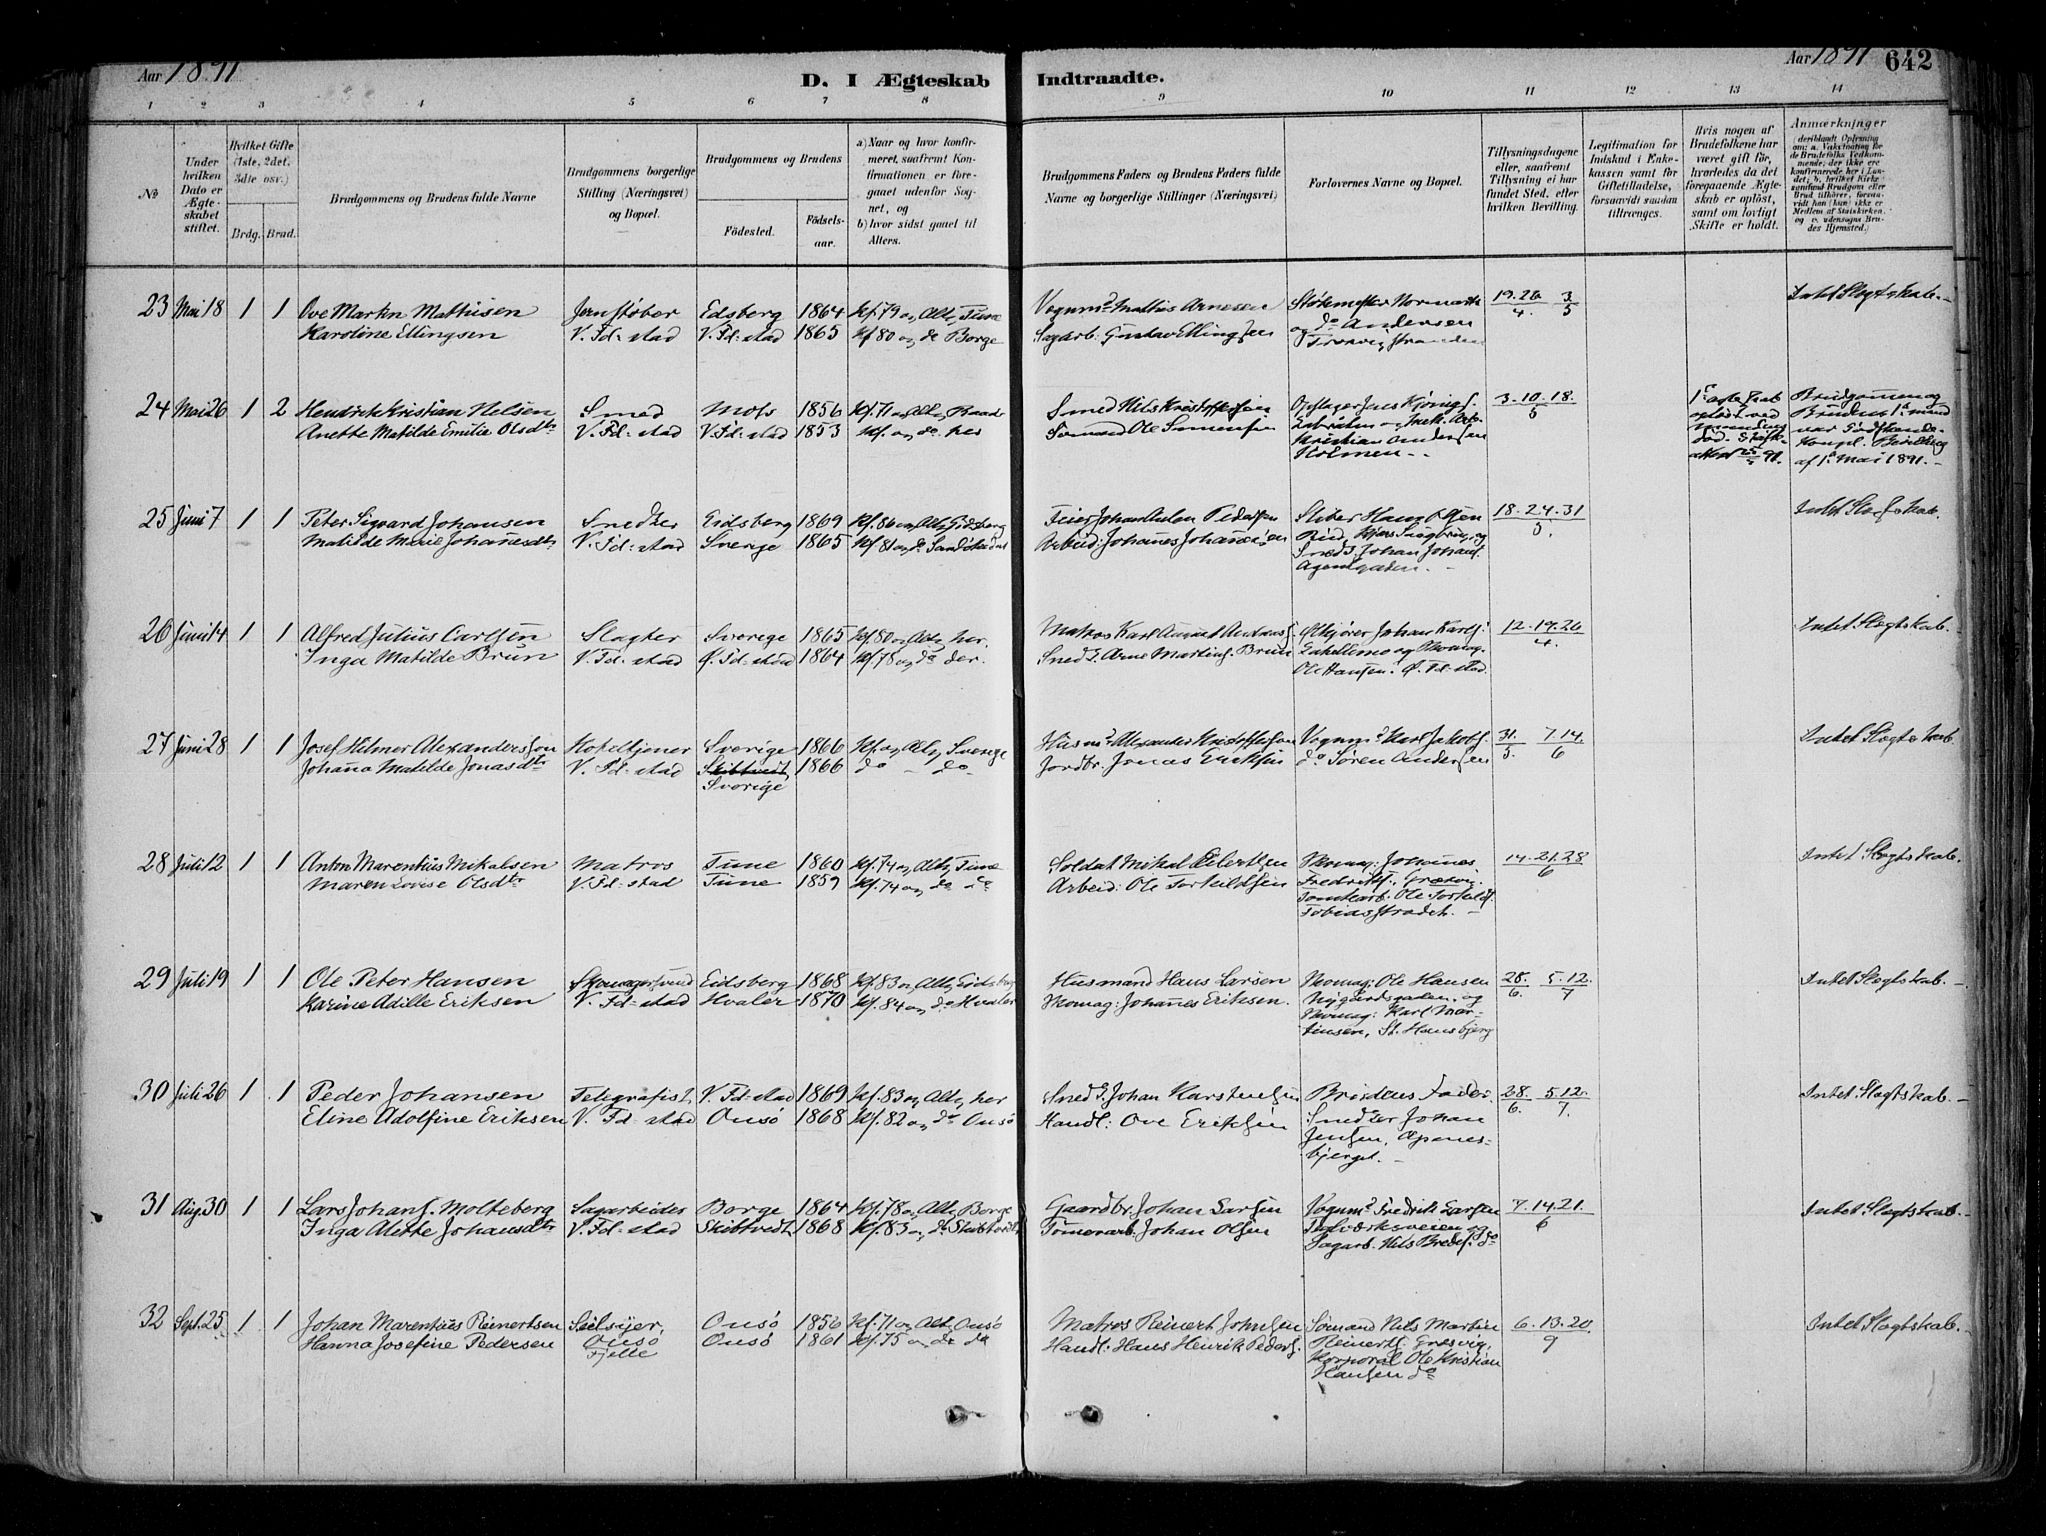 Aar 1891
D. I Ægteskab
Indtraadte.
Aar 1891
642
1 2 3 4 5 6 7 8 9 10 11 12 13 14
No
Under hvilken Dato er Ægteskabet stiftet.
Hvilket Gifte (1ste, 2det, 3die osv.)
Brdg. Brud.
Brudgommens og Brudens fulde Navne
Brudgommens borgerlige Stilling (Næringsvei) og Bopæl.
Brudgommens og Brudens
Födested.
Födselsaar.
a) Naar og hvor konfirmeret, saafremt Konfirmationen er foregaaet udenfor Sognet, og
b) hvor sidst gaaet til Alters.
Brudgommens Faders og Brudens Faders fulde Navne og borgerlige Stillinger (Næringsvei)
Forlovernes Navne og Bopæl.
Tillysningsdagene eller, saafremt Tillysning ei har fundet Sted, efter hvilken Bevilling.
Legitimation for Indskud i Enkekassen samt for Giftetilladelse, forsaavidt saadan tiltrænges.
Hvis nogen af Brudefolkene har været gift för, hvorledes da det foregaaende Ægteskab er oplöst, samt om lovligt Skifte er holdt.
Anmærkninger
23 Mai 18 1 1 Ove Martin Mathisen Jernstöber Edsberg 1864 Kf. 79 og Alt. Tune Vognmd Mathis Arnesen 19. 26 3
Karoline Ellingsen V. Fd:stad V. Fd:stad 1865 Kf 80 og do Borge Sagarb: Gustav Ellingsen og do Andersen 4. 5
Intet Slegtskab.
24 Mai 26 1 2 Hendrik Kristian Nelsen Smed Moss 1856 Kf. 71 og Alt. Smed Nils Kristoffersen 3. 10. 18.
Anette Matilde Emilie Olsdtr V. Fd:stad V. Fd:stad 1853 Kf. og do her Sömand Ole Simensen 5
Kristian Andersen
Holmen
Brudgommen og
Brudens 1e mand
Kongel. Bevilling
af 1e Mai 1891.
25 Juni 7 1 1 Peter Sigvard Johansen Smedker Eidsberg 1869 Kf. 86 og Alt. Eidsberg Feier Johan Anton Pedersen 18. 24. 31
Matilde Marie Johanesdtr V. Fd:stad Sverige 1865 Kf. 81 og do Arbeid: Johanes Johanesen 5.
Smed S. Johan Johans.
Agentgaden.
Intet Slegtskab.
26 Juni 14 1 1 Alfred Julius Carlsen Slagter Sverige 1865 Kf. 80 og Alt. her. Matros Karl August 12. 19. 26
Inga Matilde Brun V. Fd:stad Ø. Fd:stad 1864 Kf. 78 og do der. Smed S. Arne Martin S. Brun 4.
Ole Hansen. Ø. Fd:stad.
Intet Slegtskab.
27 Juni 28 1 1 Josef Hilmer Alexandersson Hoteltjener Sverige 1866 Kf. og Alt. Sverige Husmd Alexander Kristoffersen Vognmd Karl Jakobs. 31. 7. 14.
Johana Matilde Jonasdtr V. Fd:stad Skibtvedt 1866 do do Jordbr. Jonas do Søren Andersen 5. 6
Sverige
Intet Slegtskab.
28 Juli 12 1 1 Anton Marentius Mikalsen Matros Tune 1860 Kf. 74 og Alt. Tune Soldat Mikal Eilertsen Skomag: Johannes 14. 21. 28
Maren Lovise Olsdtr V. Fd:stad Tune 1859 Kf. 74 og do do Arbeid: Ole Torkildsen Fredriks., Græsvig. 6
Tomtearb. Ole Torkilds.
Tobiasstrædet.
Intet Slegtskab.
29 Juli 19 1 1 Ole Peter Hansen Skomagersvend Eidsberg 1868 Kf. 83 og Alt. Eidsberg Husmand Hans Larsen Skomag: Ole Hansen 28. 5. 12.
Karine Adille Eriksen V. Fd:stad Hvaler 1870 Kf. 84 og do Hvaler Skomag: Johanes Eriksen. Nygårdsgaten. og 6. 7
Skomag: Karl Mar-
tinsen, St. Hansbjerg
Intet Slegtskab.
30 Juli 26 1 1 Peder Johansen Telegrafist. V. Fd:stad 1869 Kf. 83 og Alt. her Smed S. Johan Karstensen Brudens Fader. 28. 5. 12.
Eline Adolfine Eriksen V. Fd:stad Onsö 1868 Kf. 82 og do Onsö Handl: Ove Eriksen Smedker Johan 6. 7.
Jensen, Apenes-
bjerget.
Intet Slegtskab.
31 Aug. 30 1 1 Lars Johans. Molteberg Sagarbeider Borge 1864 Kf. 78 og Alt. Borge Gaardbr. Johan Larsen Vognmd Fredrik Larsen 7. 14. 21.
Inga Alette Johansdtr V. Fd:stad Skibtvedt 1868 Kf. 83 og do Skibtvedt Tömerarb. Johan Olsen 6
Sagarb. Nils Bredes. do
Intet Slegtskab.
32 Sept. 25 1 1 Johan Marentius Reinertsen Seilsyer, Onsö 1856 Kf. 71 og Alt. Onsö Matros Reinert Johnsen Sömand Nils Martin 6. 13. 20.
Hanna Josefine Pedersen Onsö Onsö 1861 Kf. 75 og do do Handl: Hans Henrik Peders. Reinerts. Gresvig, 9
Fjelle Korporal Ole Kristian
Hansen do
Intet Slegtskab.